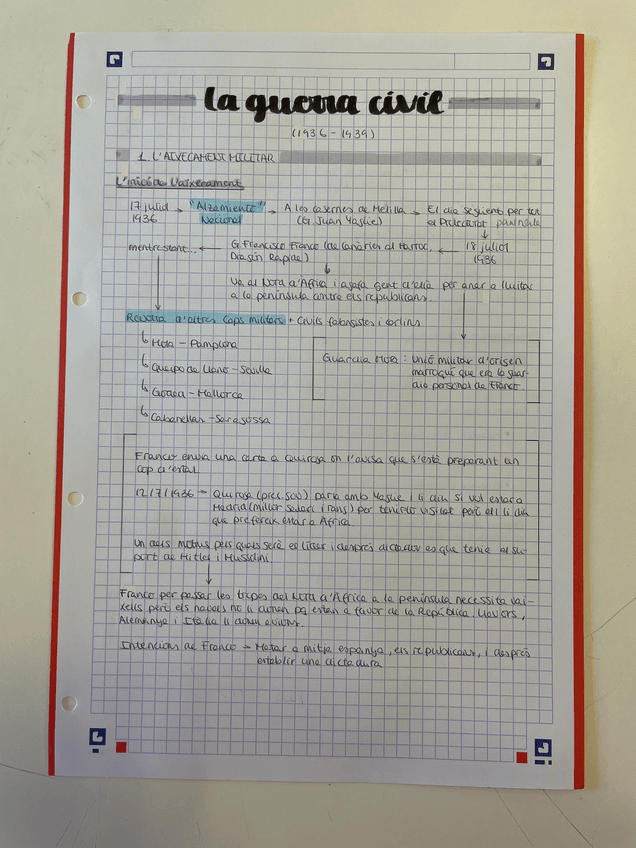 la guerra civil
(1936 - 1939)
1. L'AIXECAMENT MILITAR
L'inici de l'aixecament
17 juliol 1936 → "Alzamiento Nacional → A les casernes de Melilla (G. Juan Yagüe) → El dia següent per tot el Protectorat península
↓
18 juliol 1936
mentrestant... ← G. Francisco Franco (de Canàries al Marroc, Dragón Rapide) ←
Va al Nord d'Àfrica i agafa gent d'allà per anar a lluitar
a la península contra els republicans.
Revolta d'altres Caps militars + Civils falangistes i carlins
↳ Mola - Pamplona
↳ Queipo de Llano - Sevilla
↳ Goded - Mallorca
↳ Cabanellas - Saragossa
Guardia Mora: unió militar d'origen
marroquí que era la guar-
dia personal de Franco.
Franco envia una carta a Quiroga on l'avisa que s'està preparant un
cop d'estat.
12/7/1936 → Quiroga (pres. gov) parla amb Yagüe i li diu si vol estar a
Madrid (millor salari i rang) per tenir-lo vigilat però ell li diu
que prefereix estar a Àfrica.
Un dels motius pels quals serà el líder i després dictador es que tenia el su-
port de Hitler i Mussolini.
↓
Franco per passar les tropes del Nord d'Àfrica a la península necessita vai-
xells però els navals no li donen pq estan a favor de la República. Llavors,
Alemanya i Itàlia li donen avions.
Intencions de Franco → Matar a mitja espanya, els republicans, i després
establir una dictadura